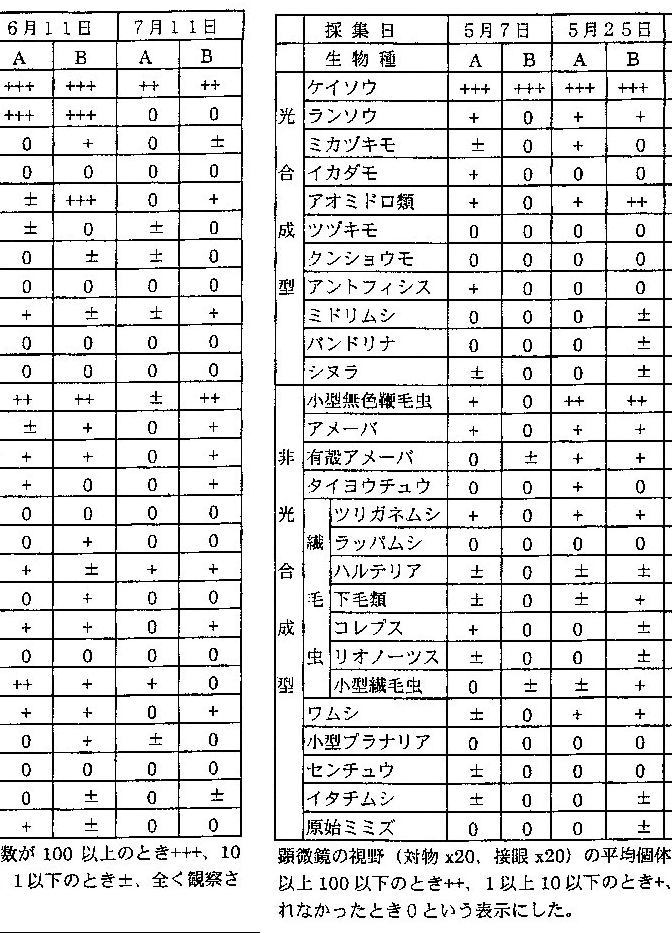 採集日 5月7日 5月25日
生物種 A B A B
光合成型
ケイソウ +++ +++ +++ +++
ランソウ + 0 + +
ミカヅキモ ± 0 + 0
イカダモ + 0 0 0
アオミドロ類 + 0 + ++
ツヅキモ 0 0 0 0
クンショウモ 0 0 0 0
アントフィシス + 0 0 0
ミドリムシ 0 0 0 ±
パンドリナ 0 0 0 ±
シヌラ ± 0 0 ±
非光合成型
小型無色鞭毛虫 + 0 ++ ++
アメーバ + 0 + +
有殻アメーバ 0 ± + +
タイヨウチュウ 0 0 + 0
繊毛虫
ツリガネムシ + 0 + +
ラッパムシ 0 0 0 0
ハルテリア ± 0 ± ±
下毛類 ± 0 ± +
コレプス + 0 0 ±
リオノーツス ± 0 0 ±
小型繊毛虫 0 ± ± +
ワムシ ± 0 + +
小型プラナリア 0 0 0 0
センチュウ ± 0 0 0
イタチムシ ± 0 0 ±
原始ミミズ 0 0 0 ±
顕微鏡の視野(対物 x20、接眼 x20)の平均個体
以上 100 以下のとき++、1 以上 10 以下のとき+、
れなかったとき 0 という表示にした。
6月11日 7月11日
A B A B
+++ +++ ++ ++
+++ +++ 0 0
0 + 0 ±
0 0 0 0
± +++ 0 +
± 0 ± 0
0 ± ± 0
0 0 0 0
+ ± ± +
0 0 0 0
0 0 0 0
++ ++ ± ++
± + 0 +
+ + 0 +
+ 0 0 +
0 0 0 0
0 + 0 0
+ ± + +
0 + 0 0
+ + 0 +
0 0 0 0
++ + + 0
+ + 0 +
0 + ± 0
0 0 0 0
0 ± 0 ±
+ ± 0 0
数が 100 以上のとき+++、10
1 以下のとき±、全く観察さ